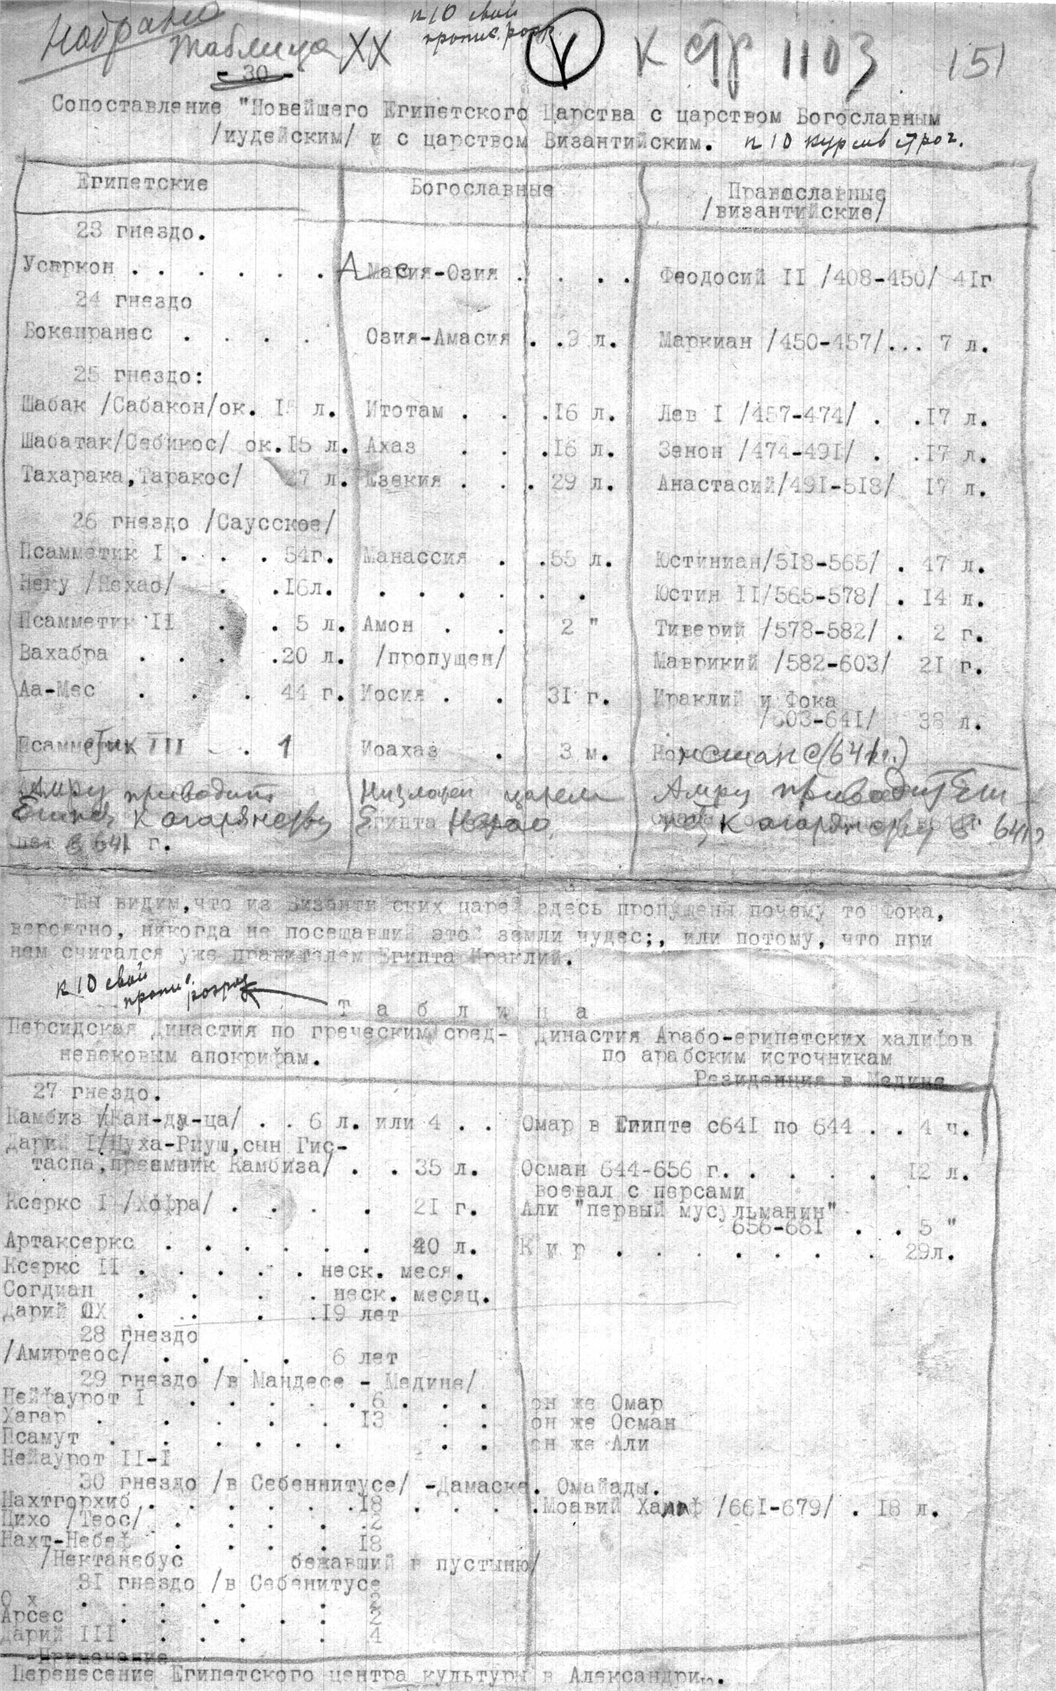 Набрано
Таблица XX
п10 свой
пропис. розр.
V
к стр 1103
151
- 30 -
Сопоставление "Новейшего Египетского Царства с царством Богославным
/иудейским/ и с царством Византийским. п 10 курсив строч.
Египетские Богославные Православные
/византийские/
23 гнездо.
Усеркон . . . . . . Амасия-Озия . . . . Феодосий II /408-450/ 41г
24 гнездо
Бокенранес . . . . Озия-Амасия . . 9 л. Маркиан /450-457/... 7 л.
25 гнездо:
Шабак /Сабакон/ок. 15 л. Итотам . . .16 л. Лев I /457-474/ . .17 л.
Шабатак/Себикос/ ок.15 л. Ахаз . . .16 л. Зенон /474-491/ . .17 л.
Тахарака,Таракос/ 27 л. Езекия . . . 29 л. Анастасий/491-518/ 17 л.
26 гнездо /Саусское/
Псамметик I . . . 54г. Манассия . .55 л. Юстиниан/518-565/ . 47 л.
Неку /Нехао/ . .16л. . . . . . . Юстин II/565-578/ . 14 л.
Псамметик II . . 5 л. Амон . . 2 " Тиверий /578-582/ . 2 г.
Вахабра . . . .20 л. /пропущен/ Маврикий /582-603/ 21 г.
Аа-Мес . . . 44 г. Иосия . . 31 г. Ираклий и Фока
/603-641/ 38 л.
Псамметик III . . 1 Иоахаз . 3 м. Констанс (641г.)
Амру приводит Низложен царем Амру приводит Еги-
Египет к агарянству Египта Нехао, пет к агарянству в 641г
в 641 г.
Мы видим,что из Византийских царей здесь пропущены почему то Фока,
вероятно, никогда не посещавший этой земли чудес;, или потому, что при
нем считался уже правителем Египта Ираклий.
п 10 свой
пропис. розряд
Т а б л и ц а
Персидская династия по греческим сред- династия Арабо-египетских халифов
невековым апокрифам. по арабским источникам
Резиденция в Медине
27 гнездо.
Камбиз /Кан-ди-ца/ . . 6 л. или 4 . . Омар в Египте с641 по 644 . . 4 ч.
Дарий I/Нуха-Риуш,сын Гис-
таспа,преемник Камбиза/ . . 35 л. Осман 644-656 г. . . . . 12 л.
воевал с персами
Ксеркс I /Хофра/ . . . . 21 г. Али "первый мусульманин"
656-661 . . 5 "
Артаксеркс . . . . . . 20 л. К и р . . . . . . . 29л.
Ксеркс II . . . . . неск. меся.
Согдиан . . . . неск. месяц.
Дарий . . . .19 лет
28 гнездо
/Амиртеос/ . . . . 6 лет
29 гнездо /в Мандесе - Медине/
Нейфаурот I . . . . . . 6 . . . он же Омар
Хагар . . . . . 13 . . он же Осман
Псамут . . . . . . . . . он же Али
Нейаурот II-I
30 гнездо /в Себеннитусе/ -Дамаске. Омайады.
Нахтгорхиб . . . . . . .18 . . . . .Моавий Халиф /661-679/ . 18 л.
Цихо /Теос/ . . . . .2
Нахт-Небеф . . . . 18
/Нектанебус бежавший в пустыню/
31 гнездо /в Себенитусе
О х . . . . . . . 2
Арсес . . . . . 2
Дарий III . . . . 4
Примечание
Перенесение Египетского центра культуры в Александрию.